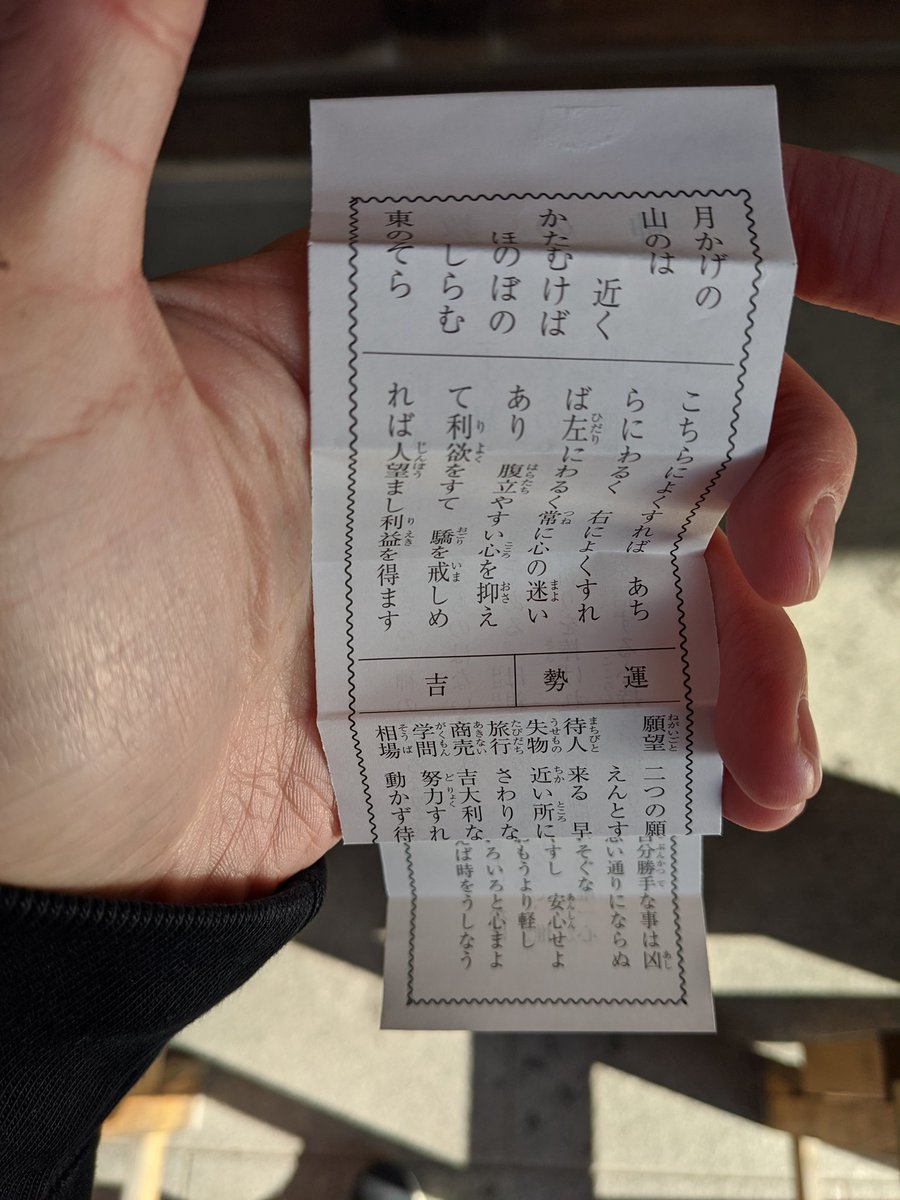 月かげの
山のは
近く
かたむけば
ほのぼの
しらむ
東のそら
こちらによくすれば　あち
らにわるく　右によくすれ
ば左にわるく常に心の迷い
あり　腹立やすい心を抑え
て利欲をすて　驕を戒しめ
れば人望まし利益を得ます
運勢
吉
願望　二つの願
えんとす
待人　来る　早
失物　近い所に
旅行　さわりな
商売　吉大利な
学問　努力すれ
相場　動かず待
自分勝手な事は凶
思い通りにならぬ
そぐな
すし　安心せよ
おもうより軽し
ろいろと心まよ
えば時をうしなう